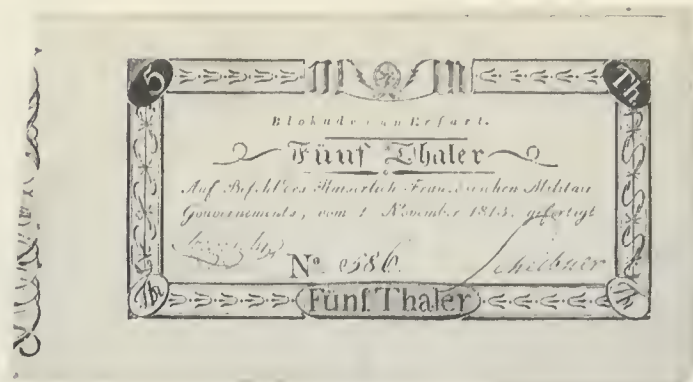 5
Th
Blokade von Erfurt.
Fünf Thaler
Auf Befehl des Kaiserlich Französischen Militair
Gouvernements, vom 1 November 1813. gefertigt
Nº 0586.
Th
Fünf Thaler